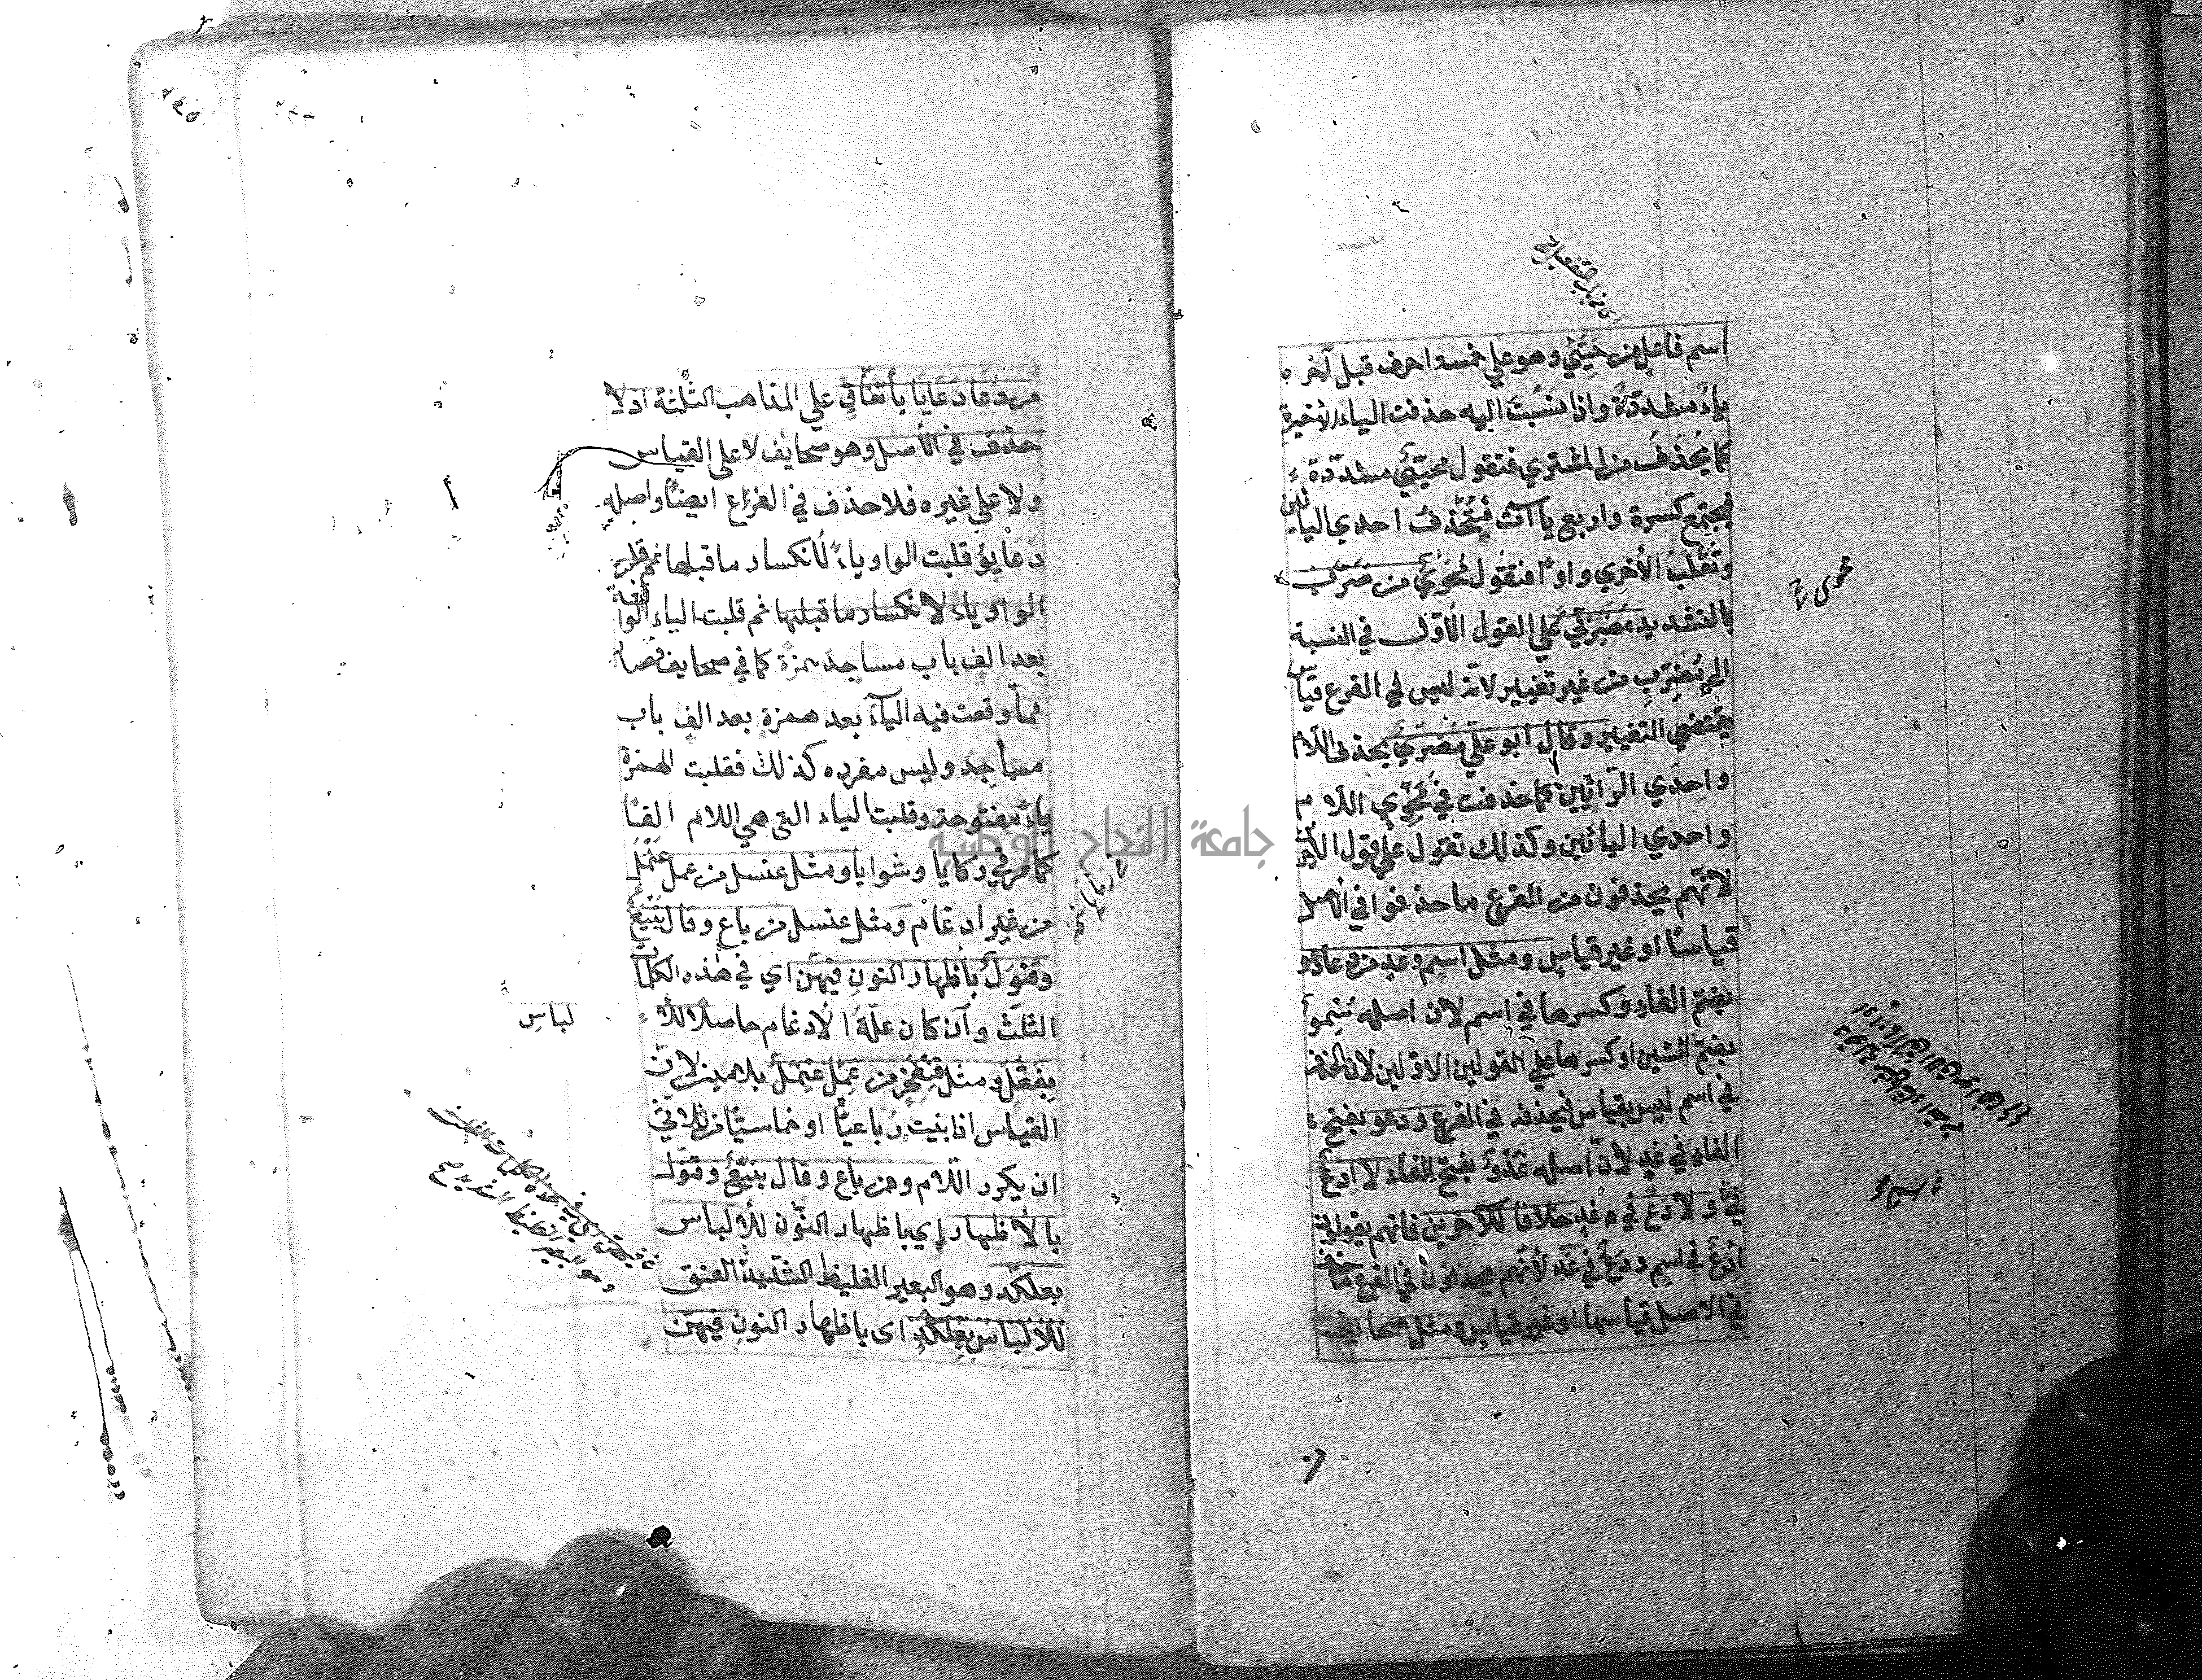 اسم فاعل من حَيَّيَ وهو على خمسة احرف قبل آخره
ياءٌ مشدّدةٌ واذا نسَبْتَ اليه حذفت الياء الاخيرة
كما يُحْذَفُ من المشتري فتقول محيّيّ مشدّدة
فيجتمع كسرة واربع ياآت فتُحْذفُ احدي اليائين
وتُقْلَبُ الأخري واوًا فتقول مُحَوِيّ من ضرب
بالتشديد مُضَرِّبيّ علي القول الأول في النسبة
الي مُضرِّبٍ من غير تغيير لانّه ليس في الفرع قياس
يقتضي التغيير وقال ابو علي مُضَرِيّ بحذف اللام
واحدي الرّائين كما حذفت في مُحَوِّي اللام
واحدي اليائين وكذلك تقول علي قول الآخرين
لانّهم يحذفون من الفرع ما حذفوا في الاصل
قياسًا او غير قياسٍ ومثل اسمٍ وغدٍ من دعا دعو
بضمّ الفاءِ وكسرها في اسم لان اصله سُِموٌ
بضمّ السّين او كسرها علي القولين الاوّلين لان الحذف
في اسم ليس بقياس فيحذف في الفرع ودعو بفتح
الفاءِ في غدٍ لانّ اصله غَدْوٌ بفتح الفاء لا اِدْعٌ
فيه ولا دَعٌ في غدٍ خلافًا للآخرين فانهم يقولون
اِدْعٌ في اسمٍ ودَعٌ في غَدٍ لأنّهم يحذفون في الفرع ما حذف
في الاصل قياسها او غير قياسٍ ومثل صحايف
من دَعَا دَعَايَا باتّفاقٍ علي المذاهب الثلثة اذ لا
حذف في الأصل وهو صحايف لا على القياس
ولا علي غيره فلا حذف في الفرع ايضًا واصله
دَعَايِوُ قلبت الواو ياءً لانكسار ما قبلها ثم قلبت
الواو ياء لانكسار ما قبلها ثم قلبت الياء الواقعة
بعد الف باب مساجد همزة كما في صحايف فصار
ممّا وقعت فيه الياء بعد همزة بعد الف باب
مساجد وليس مفرده كذلك فقلبت الهمزة
ياءً مفتوحة وقلبت الياء التى هي اللام الفًا
كما مرّ في ركايا وشوايا ومثل عنسل من عمل عَنْمَلٌ
من غير ادغام ومثل عنسل من باع وقال بَنْيَعٌ
وقَنْوَلٌ باظهار النون فيهنّ اي في هذه الكلمات
الثلث وان كان علّة الادغام حاصلًا للالتباس
بفعّل ومثل قِنْفَخْرٍ من عَمِلَ عِنْمَلٌّ بلامين لانّ
القياس اذا بنيت رباعيًّا او خماسيًّا من ثلاثيّ
ان يكرر اللام ومن باع وقال بِنْيَعٌّ وقِنْوَلٌّ
بالأظهار اي باظهار النّون للألباس
بعلكّد وهو البعير الغليظ الشّديد العنق
للالباس بعِلكَّدٍ اى باظهار النون فيهنّ
لباس